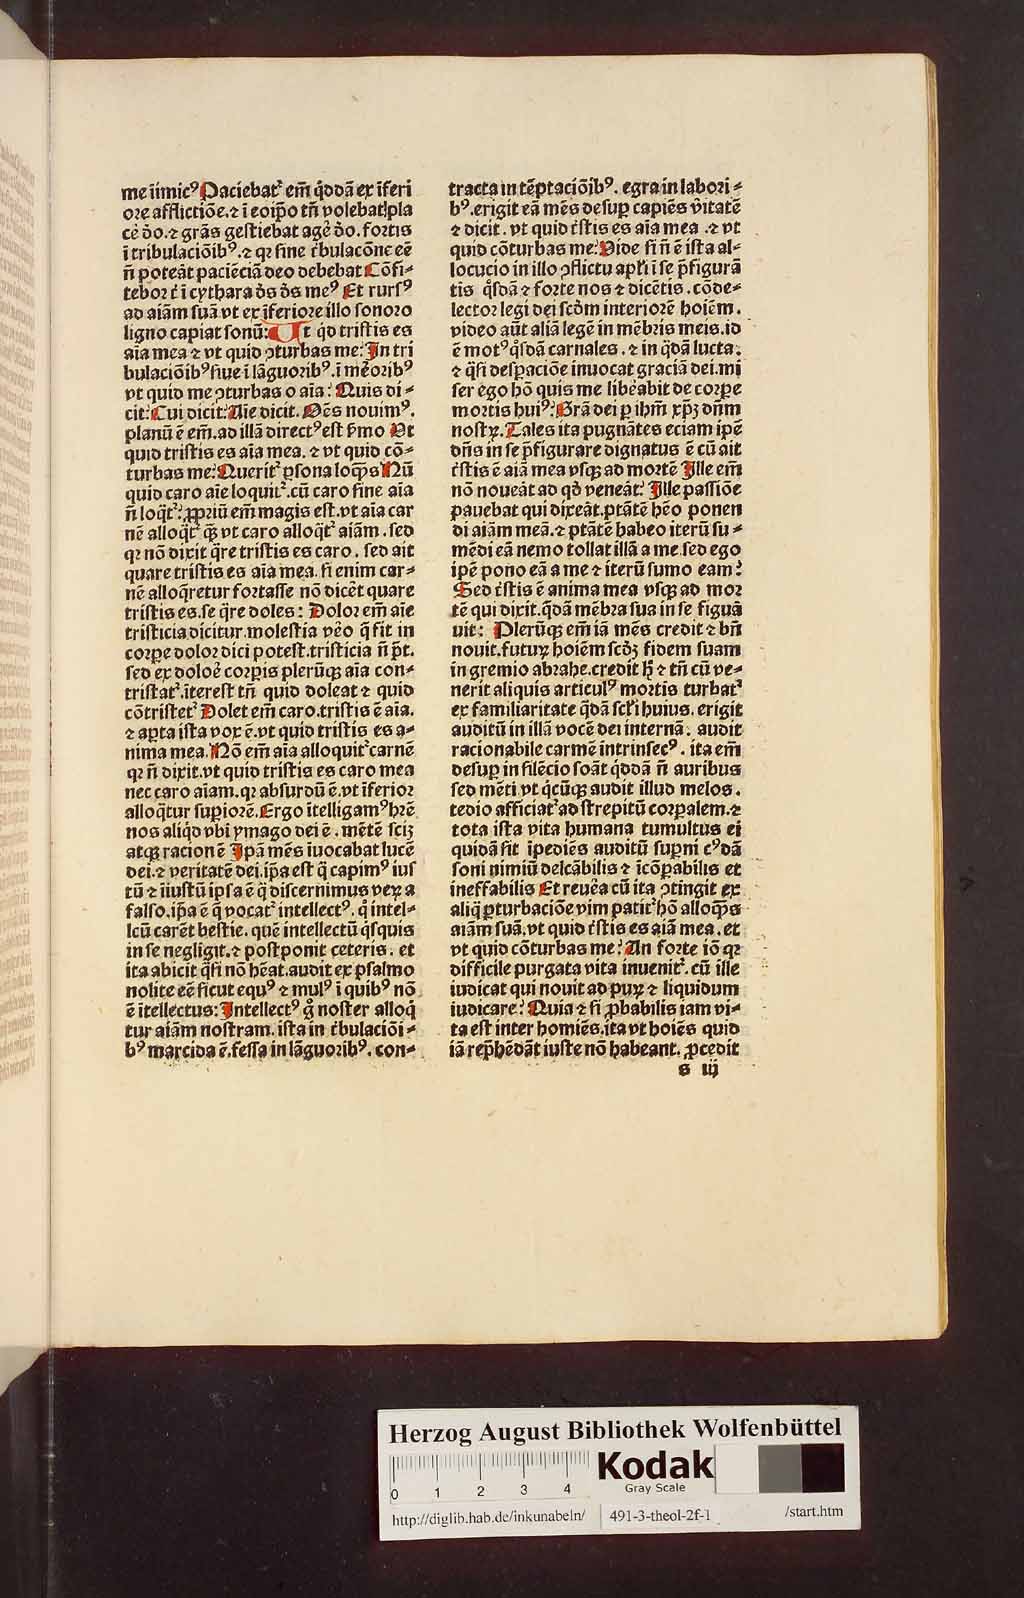 me iīmicꝰ Paciebatᷣ em̄ q̇ddā ex īferi
ore afflictiōe.⁊ ī eoip̄o tn̄ volebat pla
cē d̓o.⁊ grās gestiebat agē d̓o. fortis
ī tribulaciōib⁹.⁊ qꝛ sine t͛bulacōne eē
n̄ poteāt paciēciā deo debebat Cōfi⸗
tebor t̄ ī cythara d̓s d̓s me⁹ Et rurs⁹
ad aiām suā vt ex īferiore illo sonoro
ligno capiat sonū: Ut qd̓ tristis es
aīa mea ⁊ vt quid ꝯturbas me: In tri
bulaciōib⁹ siue ī lāguorib⁹. ī mēorib⁹
vt quid me ꝯturbas o aīa: Quis di⸗
cit: Cui dicit: Aīe dicit. Om̄s nouim⁹.
planū ē em̄. ad illā direct⁹ est p̄mo Vt
quid tristis es aīa mea. ⁊ vt quid cō⸗
turbas me: Queritᷣ p̱sona loq̄s Nū
quid caro aīe loquitᷣ. cū caro sine aīa
n̄ loq̄tᷣ: ꝓpriū em̄ magis est. vt aīa car
nē alloq̄tᷣ q̄ꝫ vt caro alloq̄tᷣ aiām. sed
qꝛ nō dixit q̄re tristis es caro. sed ait
quare tristis es aīa mea. si enim car⸗
nē alloq̄retur fortasse nō dicēt quare
tristis es. se q̄re doles: Dolor em̄ aīe
tristicia dicitur. molestia v̄o q̄ fit in
corꝑe dolor dici potest. tristicia n̄ p̄t.
sed ex doloē corꝑis plerūqꝫ aīa con⸗
tristatᷣ. īterest tn̄ quid doleat ⁊ quid
cōtristetᷣ Dolet em̄ caro. tristis ē aīa.
⁊ apta ista vox ē. vt quid tristis es a⸗
nima mea. Nō em̄ aīa alloquitᷣ carnē
qꝛ n̄ dixit. vt quid tristis es caro mea
nec caro aīam. qꝛ absurdū ē. vt īferior
alloq̄tur superiorē. Ergo ītelligam⁹ hr̄e
nos aliqd̓ vbi ymago dei ē. mētē scꝫ
atqꝫ racionē Ip̄a mēs iuocabat lucē
dei. ⁊ veritatē dei. ip̄a est q̄ capim⁹ ius
tū ⁊ iiustū ipsa ē q̄ discernimus veꝝ a
falso. ip̄a ē q̄ vocatᷣ intellect⁹. q̇ intel⸗
lcū carēt bestie. quē intellectū q̇squis
in se negligit. ⁊ postponit ceteris. et
ita abicit q̄si nō hēat. audit ex psalmo
nolite eē sicut equ⁹ ⁊ mul⁹ ī quib⁹ nō
ē ītellectus: Intellect⁹ g̊ noster alloq̄
tur aiām nostram. ista in t͛bulaciōi⸗
b⁹ marcida ē. fessa in lāguorib⁹. con⸗
tracta in tēptaciōib⁹. egra in labori⸗
b⁹. erigit eā mēs desuꝑ capiēs v̄itatē
⁊ dicit. vt quid t͛stis es aīa mea. ⁊ vt
quid cōturbas me: Vide si n̄ ē ista al⸗
locucio in illo ꝯflictu apl̄i ī se p̄figurā
tis q̇sdā ⁊ forte nos ⁊ dicētis. cōde⸗
lector legi dei scd̓m interiorē hoiēm.
video aūt aliā legē in mēbris meis. id
ē mot⁹ q̇sdā carnales. ⁊ in q̄dā lucta.
⁊ q̄si desꝑaciōe inuocat graciā dei. mi
ser ego hō quis me libēabit de corꝑe
mortis hui⁹: Grā dei ꝑ ihm̄ xp̄ꝫ dn̄m
nostꝝ. Tales ita pugnātes eciam ip̄e
dn̄s in se p̄figurare dignatus ē cū ait
t͛stis ē aiā mea vsqꝫ ad mortē Ille em̄
nō noueāt ad qd̓ veneāt: Ille passiōe
pauebat qui dixeāt. ptātē hēo ponen
di aiām meā. ⁊ ptātē habeo iterū su⸗
mēdi eā nemo tollat illā a me. sed ego
ip̄e pono eā a me ⁊ iterū sumo eam:
Sed t͛stis ē anima mea vsqꝫ ad mor
tē qui dixit. q̄dā mēbra sua in se figuā
uit: Plerūqꝫ em̄ iā mēs credit ⁊ bn̄
nouit. futuꝝ hoiēm scd̓ꝫ fidem suam
in gremio abrahe. credit ⁊ tn̄ cū ve⸗
nerit aliquis articul⁹ mortis turbatᷣ
ex familiaritate q̄dā scl̄i huius. erigit
auditū in illā vocē dei internā. audit
racionabile carmē intrinsec⁹. ita em̄
desuꝑ in silēcio soāt q̇ddā n̄ auribus
sed mēti vt q̇cūqꝫ audit illud melos.
tedio afficiatᷣ ad strepitū corꝑalem. ⁊
tota ista vita humana tumultus ei
quidā sit īpediēs auditū suꝑni c⁹dā
soni nimiū delcābilis ⁊ īcōꝑabilis et
ineffabilis Et reuēa cū ita ꝯtingit ex
aliq̄ ꝑturbaciōe vim patitᷣ hō alloq̄s
aiām suā. vt quid t͛stis es aiā mea. et
vt quid cōturbas me: An forte iō qꝛ
difficile purgata vita inuenitᷣ. cū ille
iudicat qui nouit ad puꝝ ⁊ liquidum
iudicare: Quia ⁊ si ꝓbabilis iam vi⸗
ta est inter homiēs. ita vt hoiēs quid
iā rep̄hēdāt iuste nō habeant. ꝓcedit
s iij
Herzog August Bibliothek Wolfenbüttel
Kodak
Gray Scale
0 1 2 3 4
http://diglib.hab.de/inkunabeln/ 491-3-theol-2f-1 /start.htm